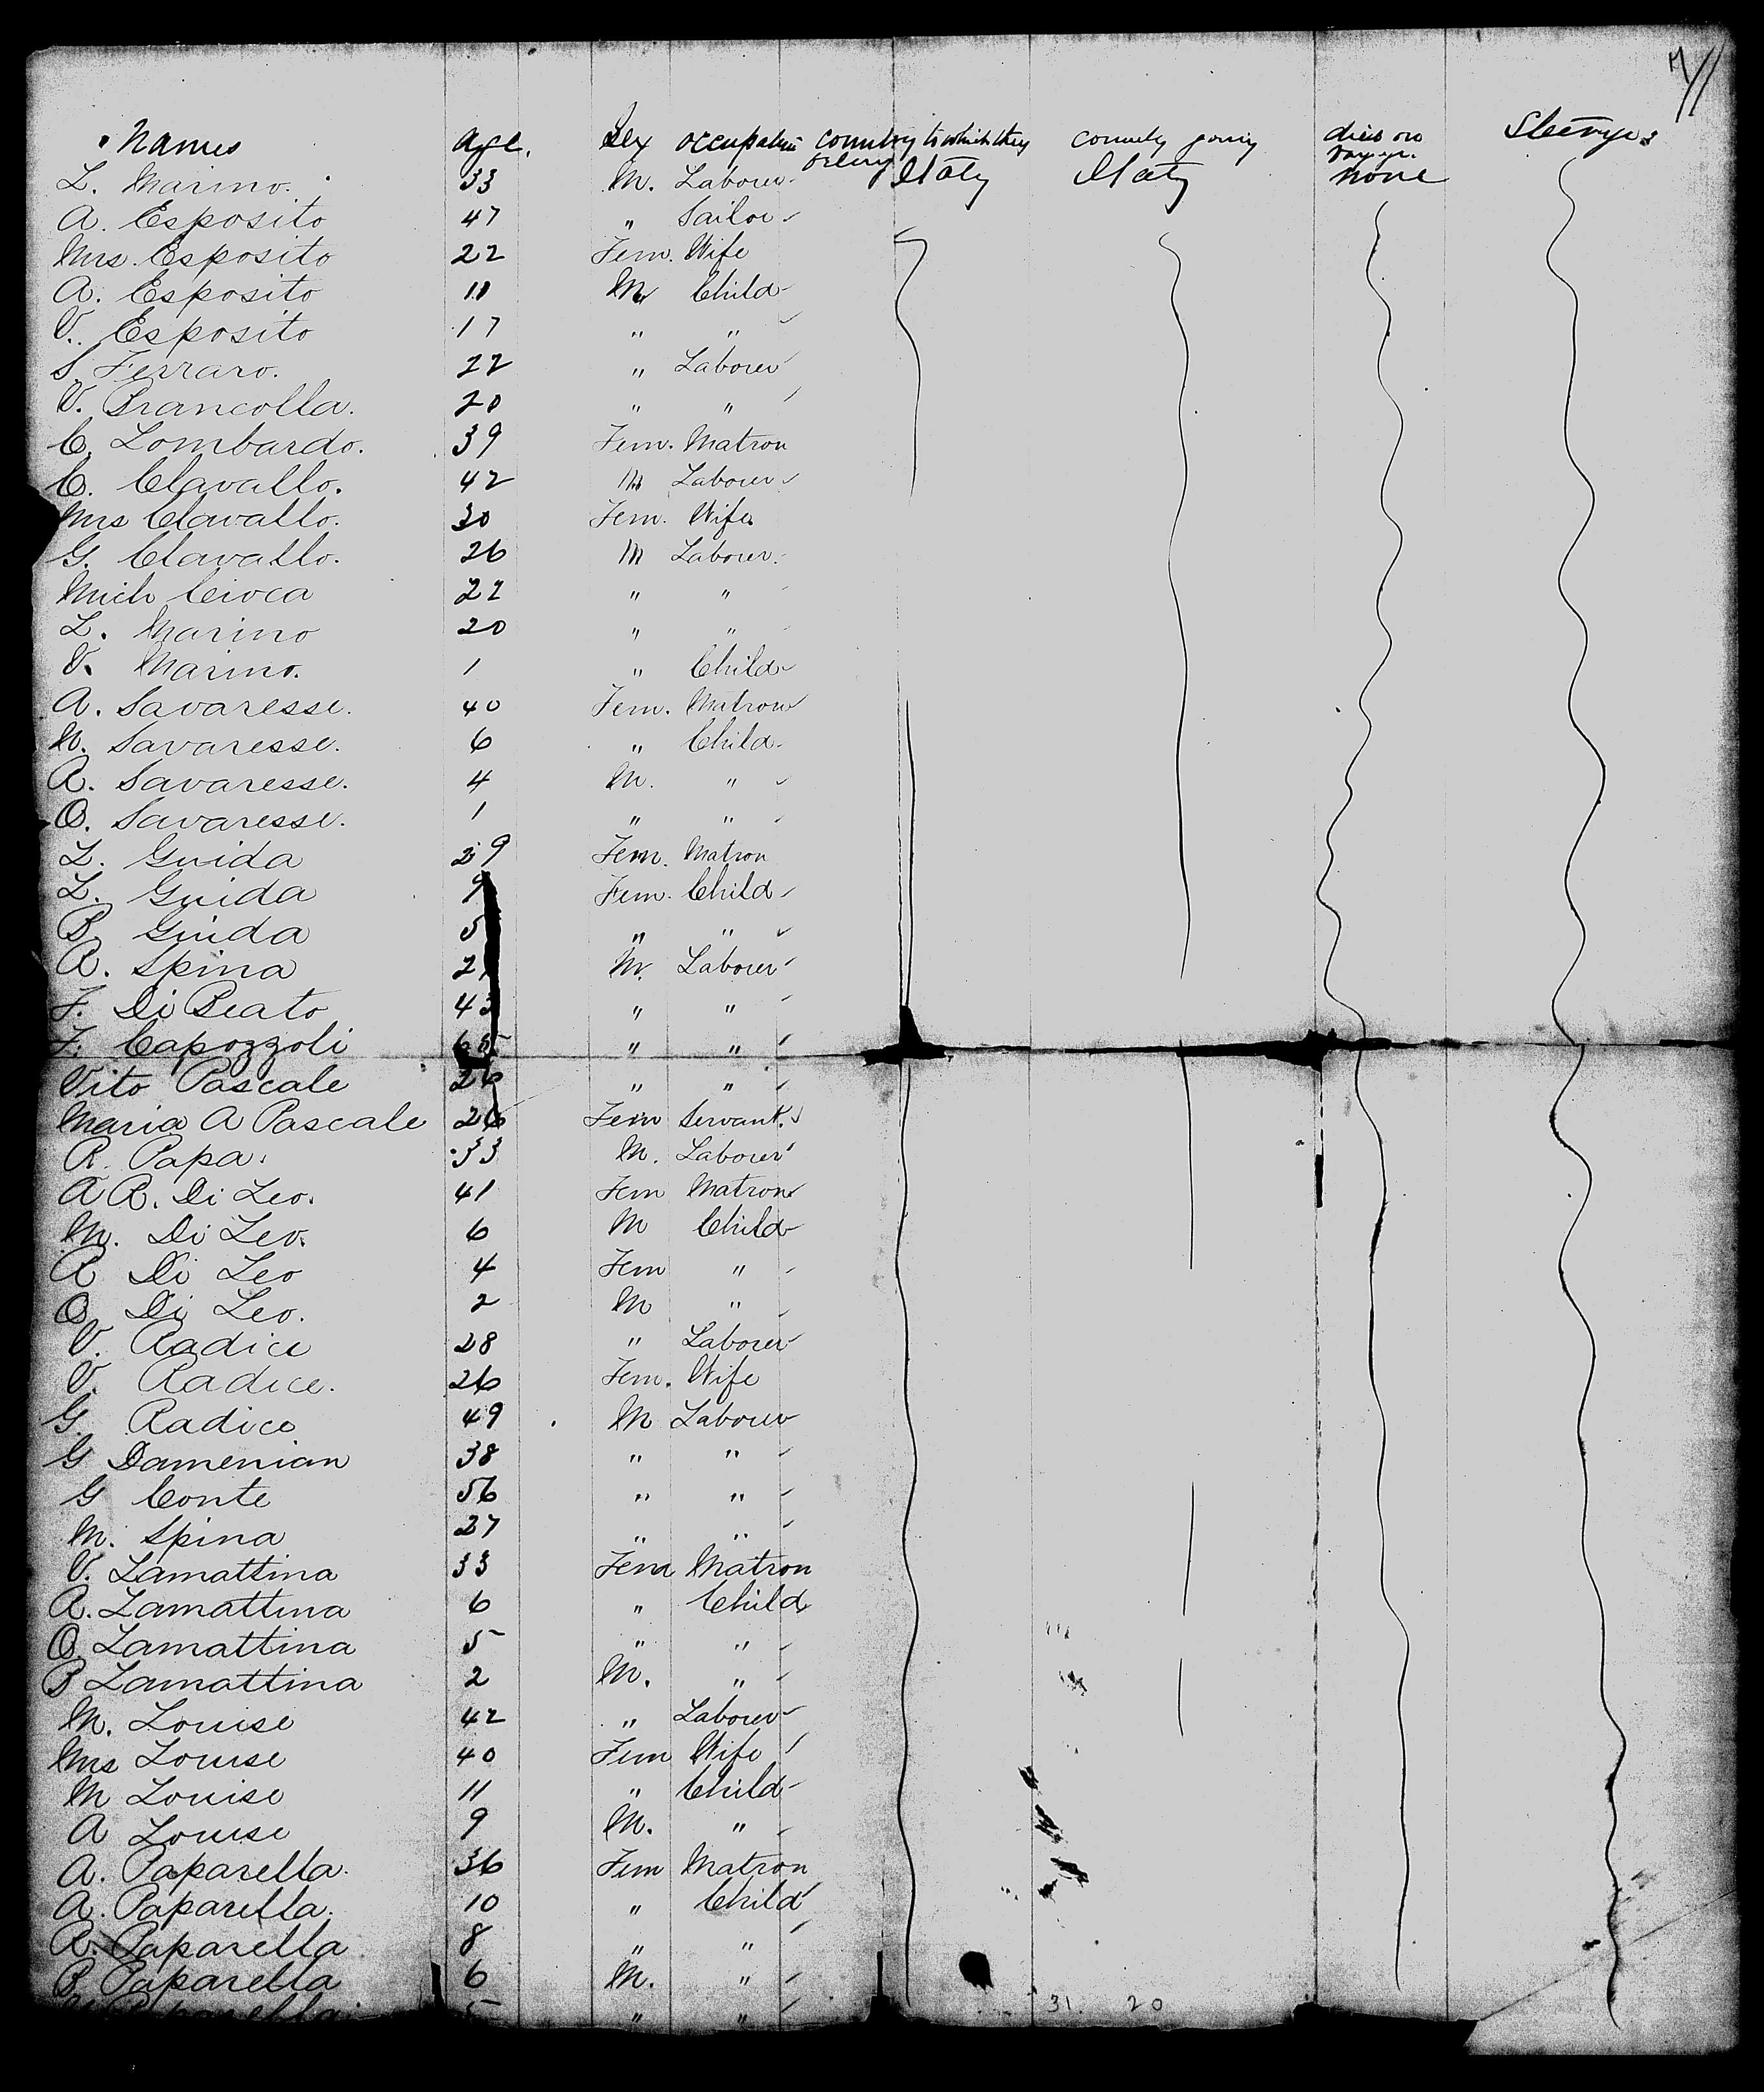 Names Age. Sex occupation country to which they belong country going died on voyage Steerage
L. Marino. 33 M. Laborer Italy Italy none
A. Esposito 47 " Sailor
Mrs. Esposito 22 Fem. Wife
A. Esposito 11 M Child
V. Esposito 17 " "
S. Ferraro. 22 " Laborer
V. Brancolla. 20 " "
C. Lombardo. 39 Fem. Matron
C. Clavallo. 42 M Laborer
Mrs Clavallo. 30 Fem. Wife
G. Clavallo. 26 M Laborer.
Mich Cioca 22 " "
L. Marino 20 " "
V. Marino. 1 " Child
A. Savaresse. 40 Fem. Matron
N. Savaresse. 6 " Child
R. Savaresse. 4 M. "
O. Savaresse. 1 " "
L. Guida 29 Fem. Matron
L. Guida 9 Fem. Child
B. Guida 5 " "
R. Spina M. Laborer
F. Di Beato 43 " "
F. Capozzoli " "
Vito Pascale 26 " "
Maria A Pascale 26 Fem Servant.
R. Papa. 33 M. Laborer
A R. Di Leo. 41 Fem Matron
M. Di Leo. 6 M Child
R Di Leo 4 Fem "
O. Di Leo. 2 M "
V. Radice 28 " Laborer
V. Radice. 26 Fem. Wife
G. Radice 49 M Laborer
G Damenian 38 " "
G Conte 56 " "
M. Spina 27 " "
V. Lamattina 33 Fem Matron
R. Lamattina 6 " Child
O. Lamattina 5 " "
B Lamattina 2 M. "
M. Louise 42 " Laborer
Mrs Louise 40 Fem Wife
M Louise 11 " Child
A Louise 9 M. "
A. Paparella. 36 Fem Matron
A. Paparella. 10 " Child
R. Paparella 8 " "
B Paparella 6 M. "
Paparella 5 " "
31. 20